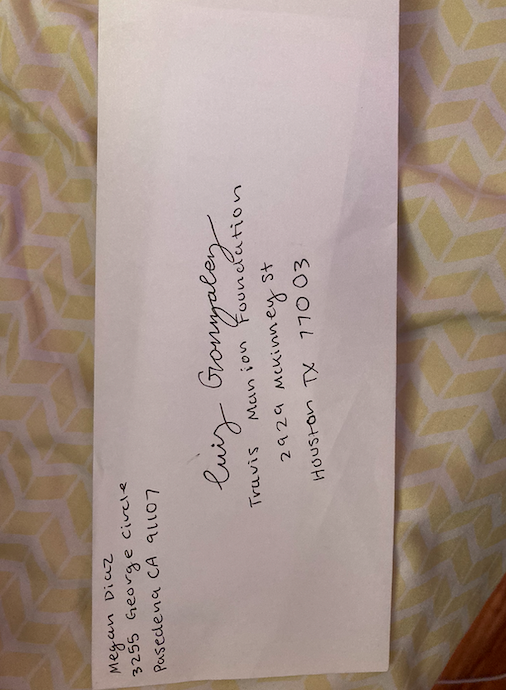 Megan Diaz
3255 George Circle
Pasedena CA 91107
Luiz Gonzalez
Travis Manion Foundation
2929 McKinney St
Houston TX 77003